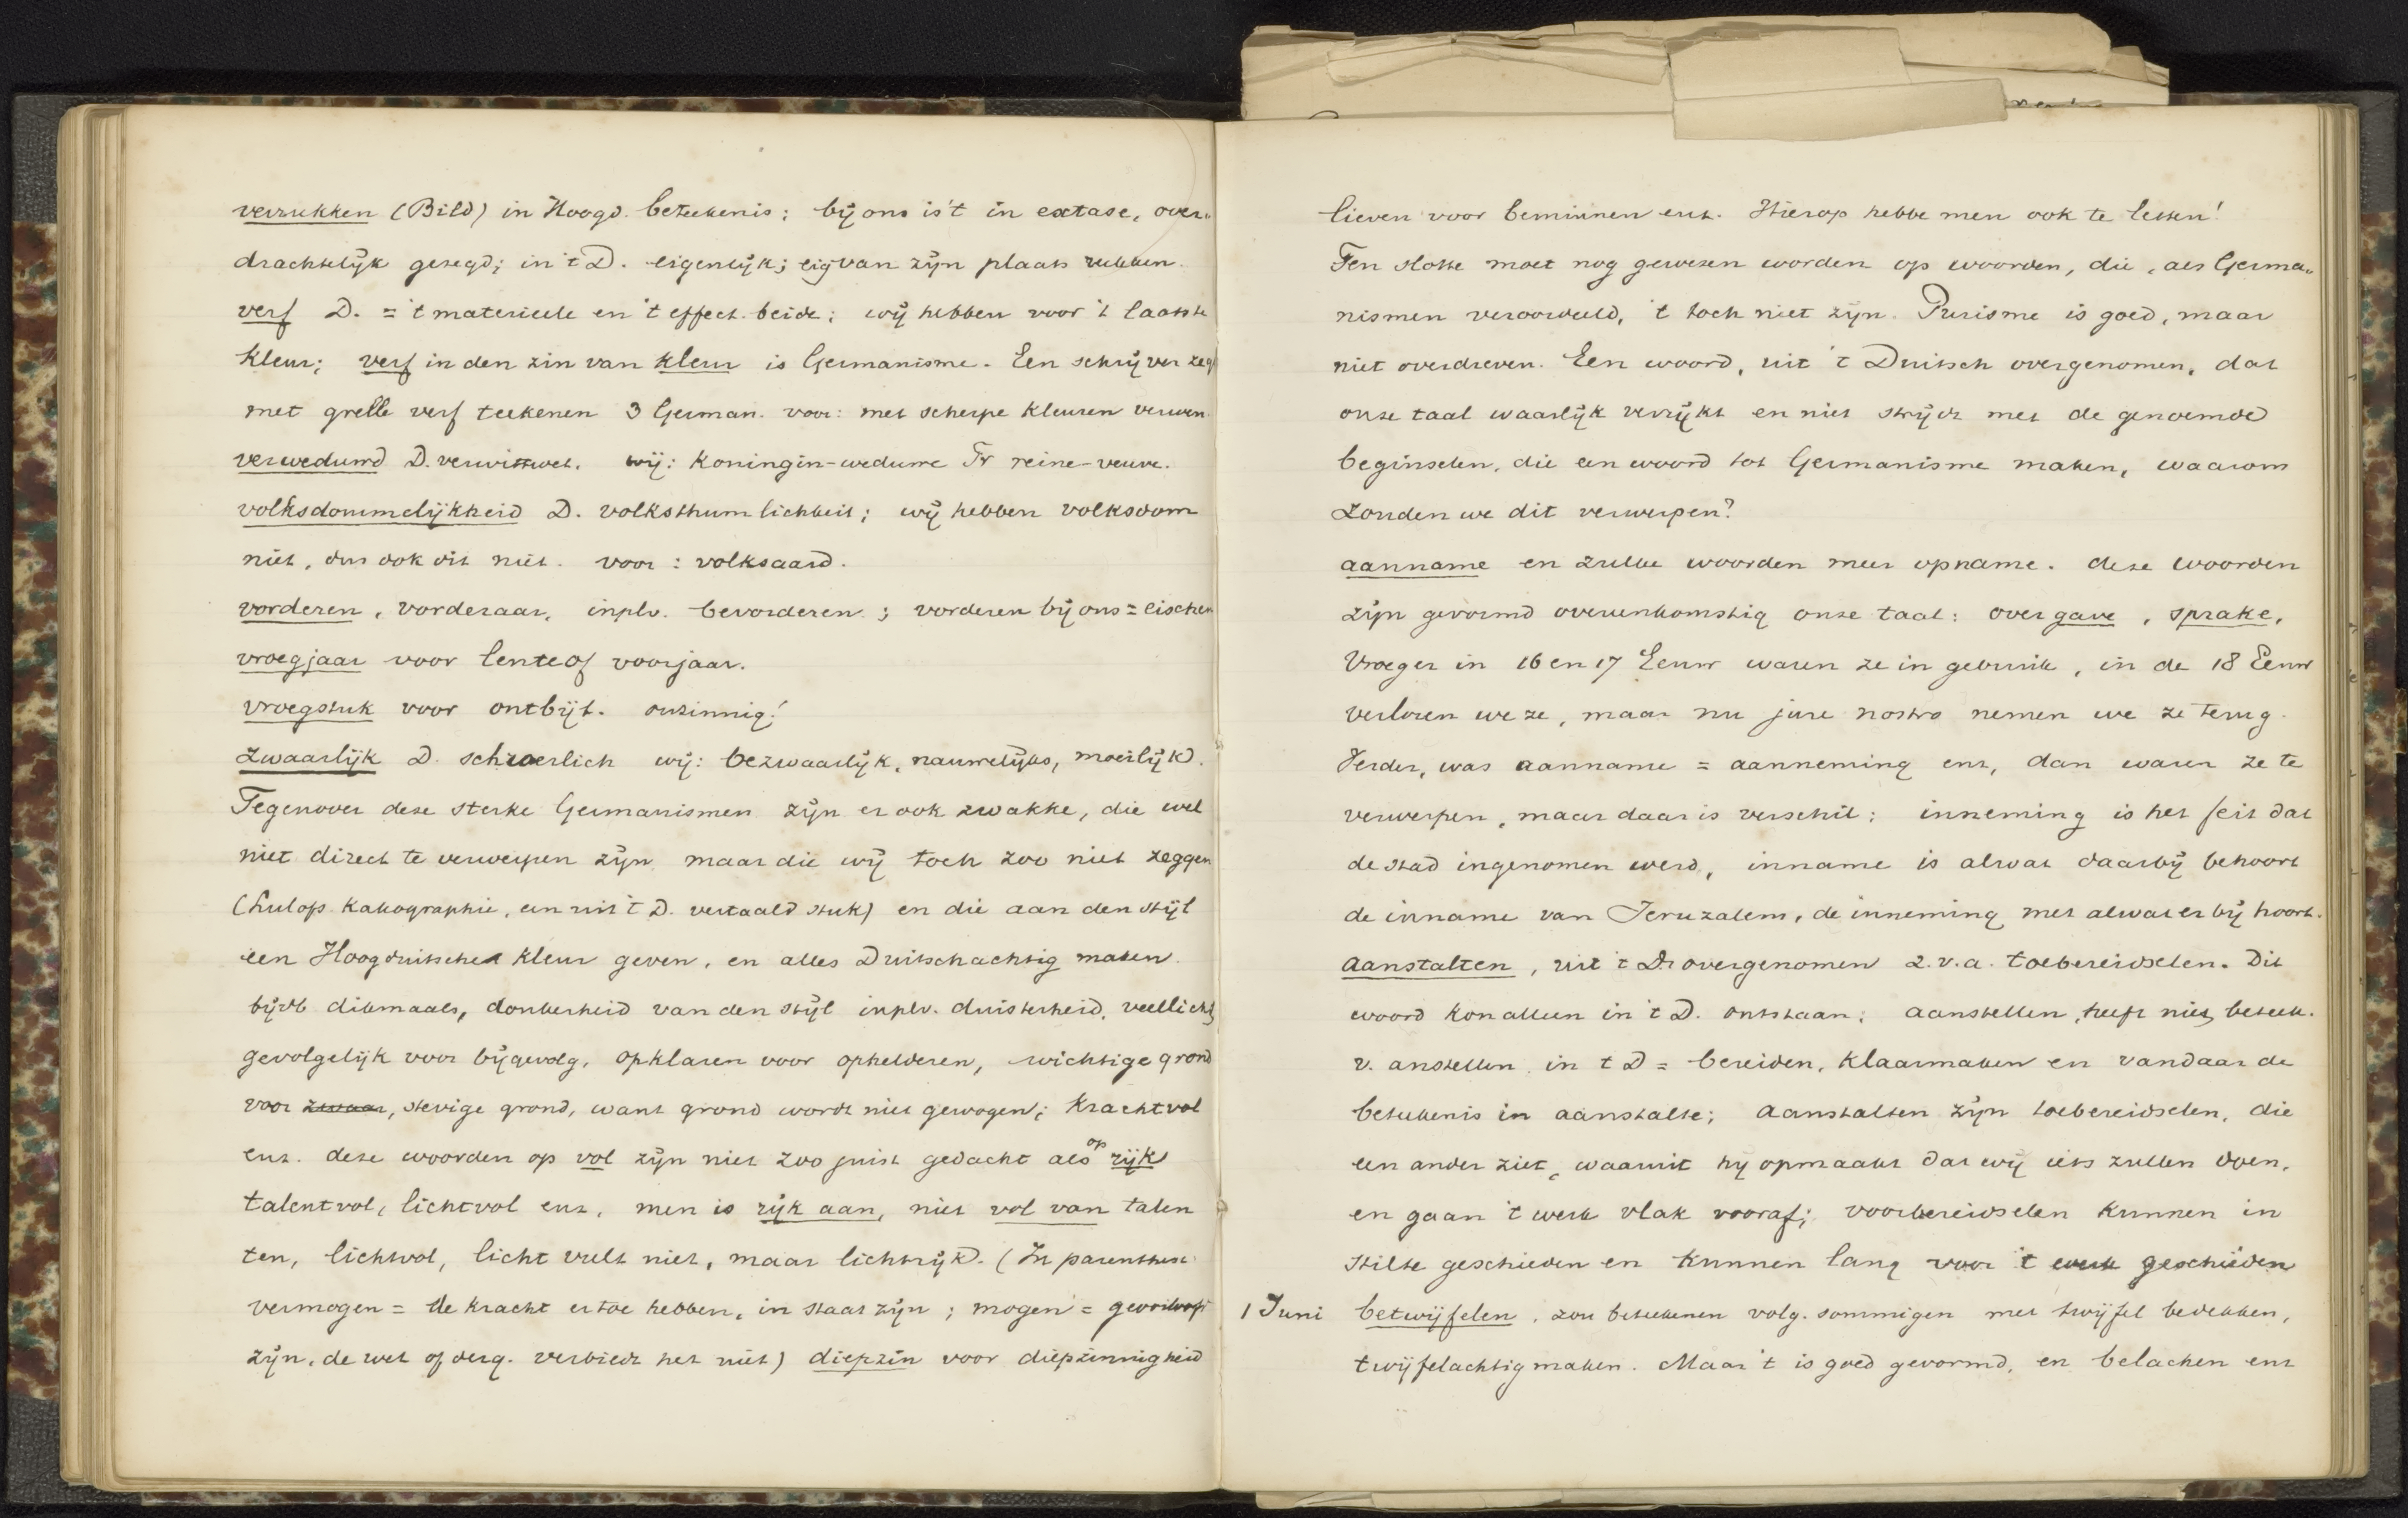 verrukken (Bild) in Hoogd. beteekenis; bij ons is 't in extase, over„
drachtelijk gezegd; in 't D. eigenlijk; eig van zijn plaats rukken.
verf D. = 't materieele en 't effect beide; wij hebben voor 't laatste
kleur; verf in den zin van kleur is Germanisme. Een schrijver zegt
met grelle verf teekenen 3 German. voor: met scherpe kleuren verwen.
verweduwd D. verwittwet. wij: Koningin-weduwe Fr reine-veuve.
volksdommelijkheid D. volksthumlichkeit; wij hebben volksdom
niet, dus ook dit niet. voor: volksaard.
vorderen, vorderaar, inplv. bevorderen; vorderen bij ons = eischen
vroegjaar voor lente of voorjaar.
vroegstuk voor ontbijt. onzinnig!
zwaarlijk D. schwerlich wij: bezwaarlijk, nauwelijks, moeilijk.
Tegenover deze sterke Germanismen zijn er ook zwakke, die wel
niet direct te verwerpen zijn maar die wij toch zoo niet zeggen
(Hulops Kakographie, een uit 't D. vertaald stuk) en die aan den stijl
een Hoogduitsche kleur geven, en alles Duitschachtig maken.
bijvb dikmaals, donkerheid van den stijl inplv. duisterheid, veellicht,
gevolgelijk voor bijgevolg, opklaren voor ophelderen, wichtige grond
voor zwaar, stevige grond, want grond wordt niet gewogen; Krachtvol
enz. deze woorden op vol zijn niet zoo juist gedacht als op rijk
talentvol, lichtvol enz, men is rijk aan, niet vol van talen
ten, lichtvol, licht vult niet, maar lichtrijk. (In parenthesi
vermogen = de kracht er toe hebben, in staat zijn; mogen =
zijn, de wet of derg. verbiedt het niet) diepzin voor diepzinnigheid
lieven voor beminnen enz. Hierop hebbe men ook te letten!
Ten slotte moet nog gewezen worden op woorden, die, als Germa„
nismen veroordeeld, 't toch niet zijn. Purisme is goed, maar
niet overdreven. Een woord, uit 't Duitsch overgenomen, dat
onze taal waarlijk verrijkt en niet strijdt met de genoemde
beginselen, die een woord tot Germanisme maken, waarom
zouden we dit verwerpen?
aanname en zulke woorden meer opname. deze woorden
zijn gevormd overeenkomstig onze taal: overgave, sprake,
Vroeger in 16 en 17 Eeuw waren ze in gebruik, in de 18 Eeuw
verloren we ze, maar nu jure nostro nemen we ze terug.
Verder, was aanname = aanneming enz, dan waren ze te
verwerpen, maar daar is verschil: inneming is het feit dat
de stad ingenomen werd, inname is alwat daarbij behoort
de inname van Jeruzalem, de inneming met alwat er bij hoort.
Aanstalten, uit 't D. overgenomen z.v.a. toebereidselen. Dit
woord kon alleen in 't D. ontstaan; aanstellen, heeft niet beteek.
v. anstellen in t D = bereiden, klaarmaken en vandaar de
beteekenis in aanstalte; aanstalten zijn toebereidselen, die
een ander ziet, waaruit hij opmaakt dat wij iets zullen doen,
en gaan 't werk vlak vooraf; voorbereidselen kunnen in
stilte geschieden en kunnen lang voor 't werk geschieden
1 Juni betwijfelen, zou beteekenen volg. sommigen met twijfel bedekken,
twijfelachtig maken. Maar 't is goed gevormd, en belachen enz